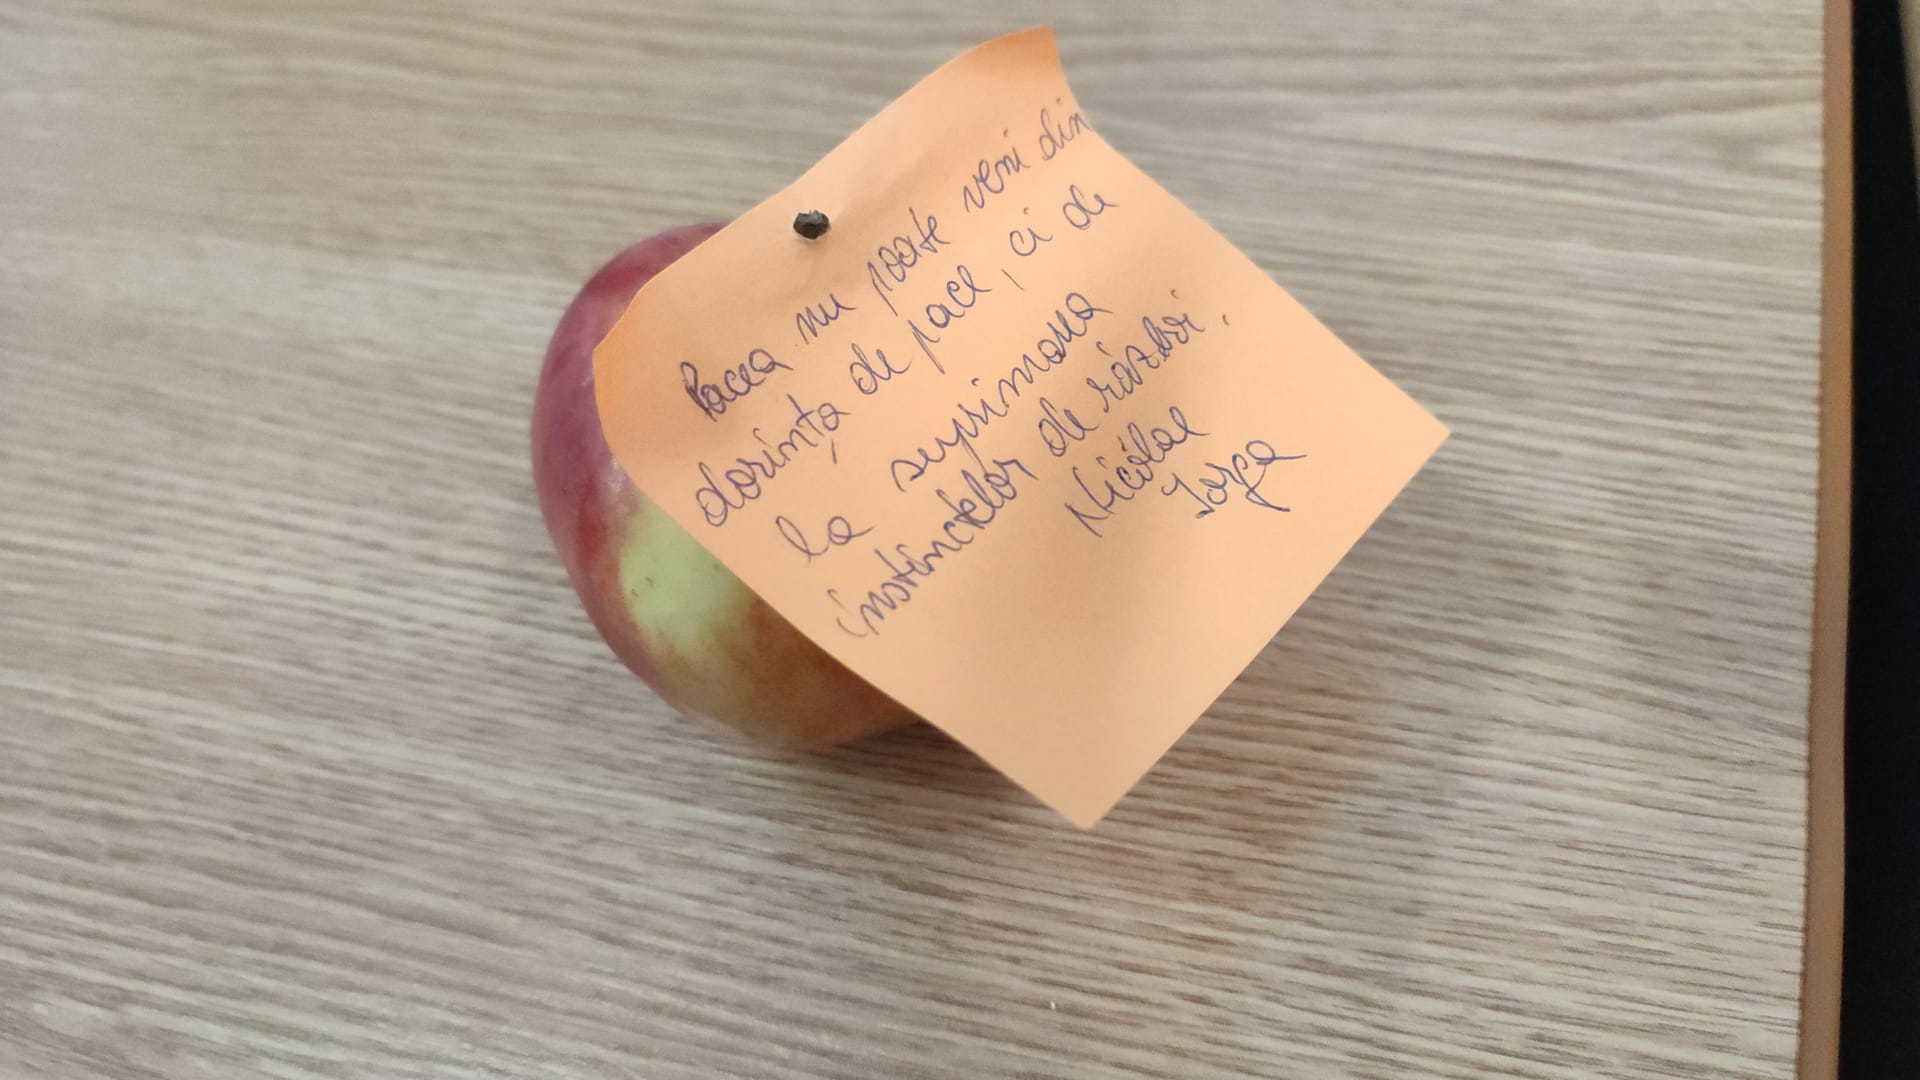 Pacea nu poate veni din
dorință de pace, ci de
la suprimarea
instinctelor de război.
Nicolae
Iorga